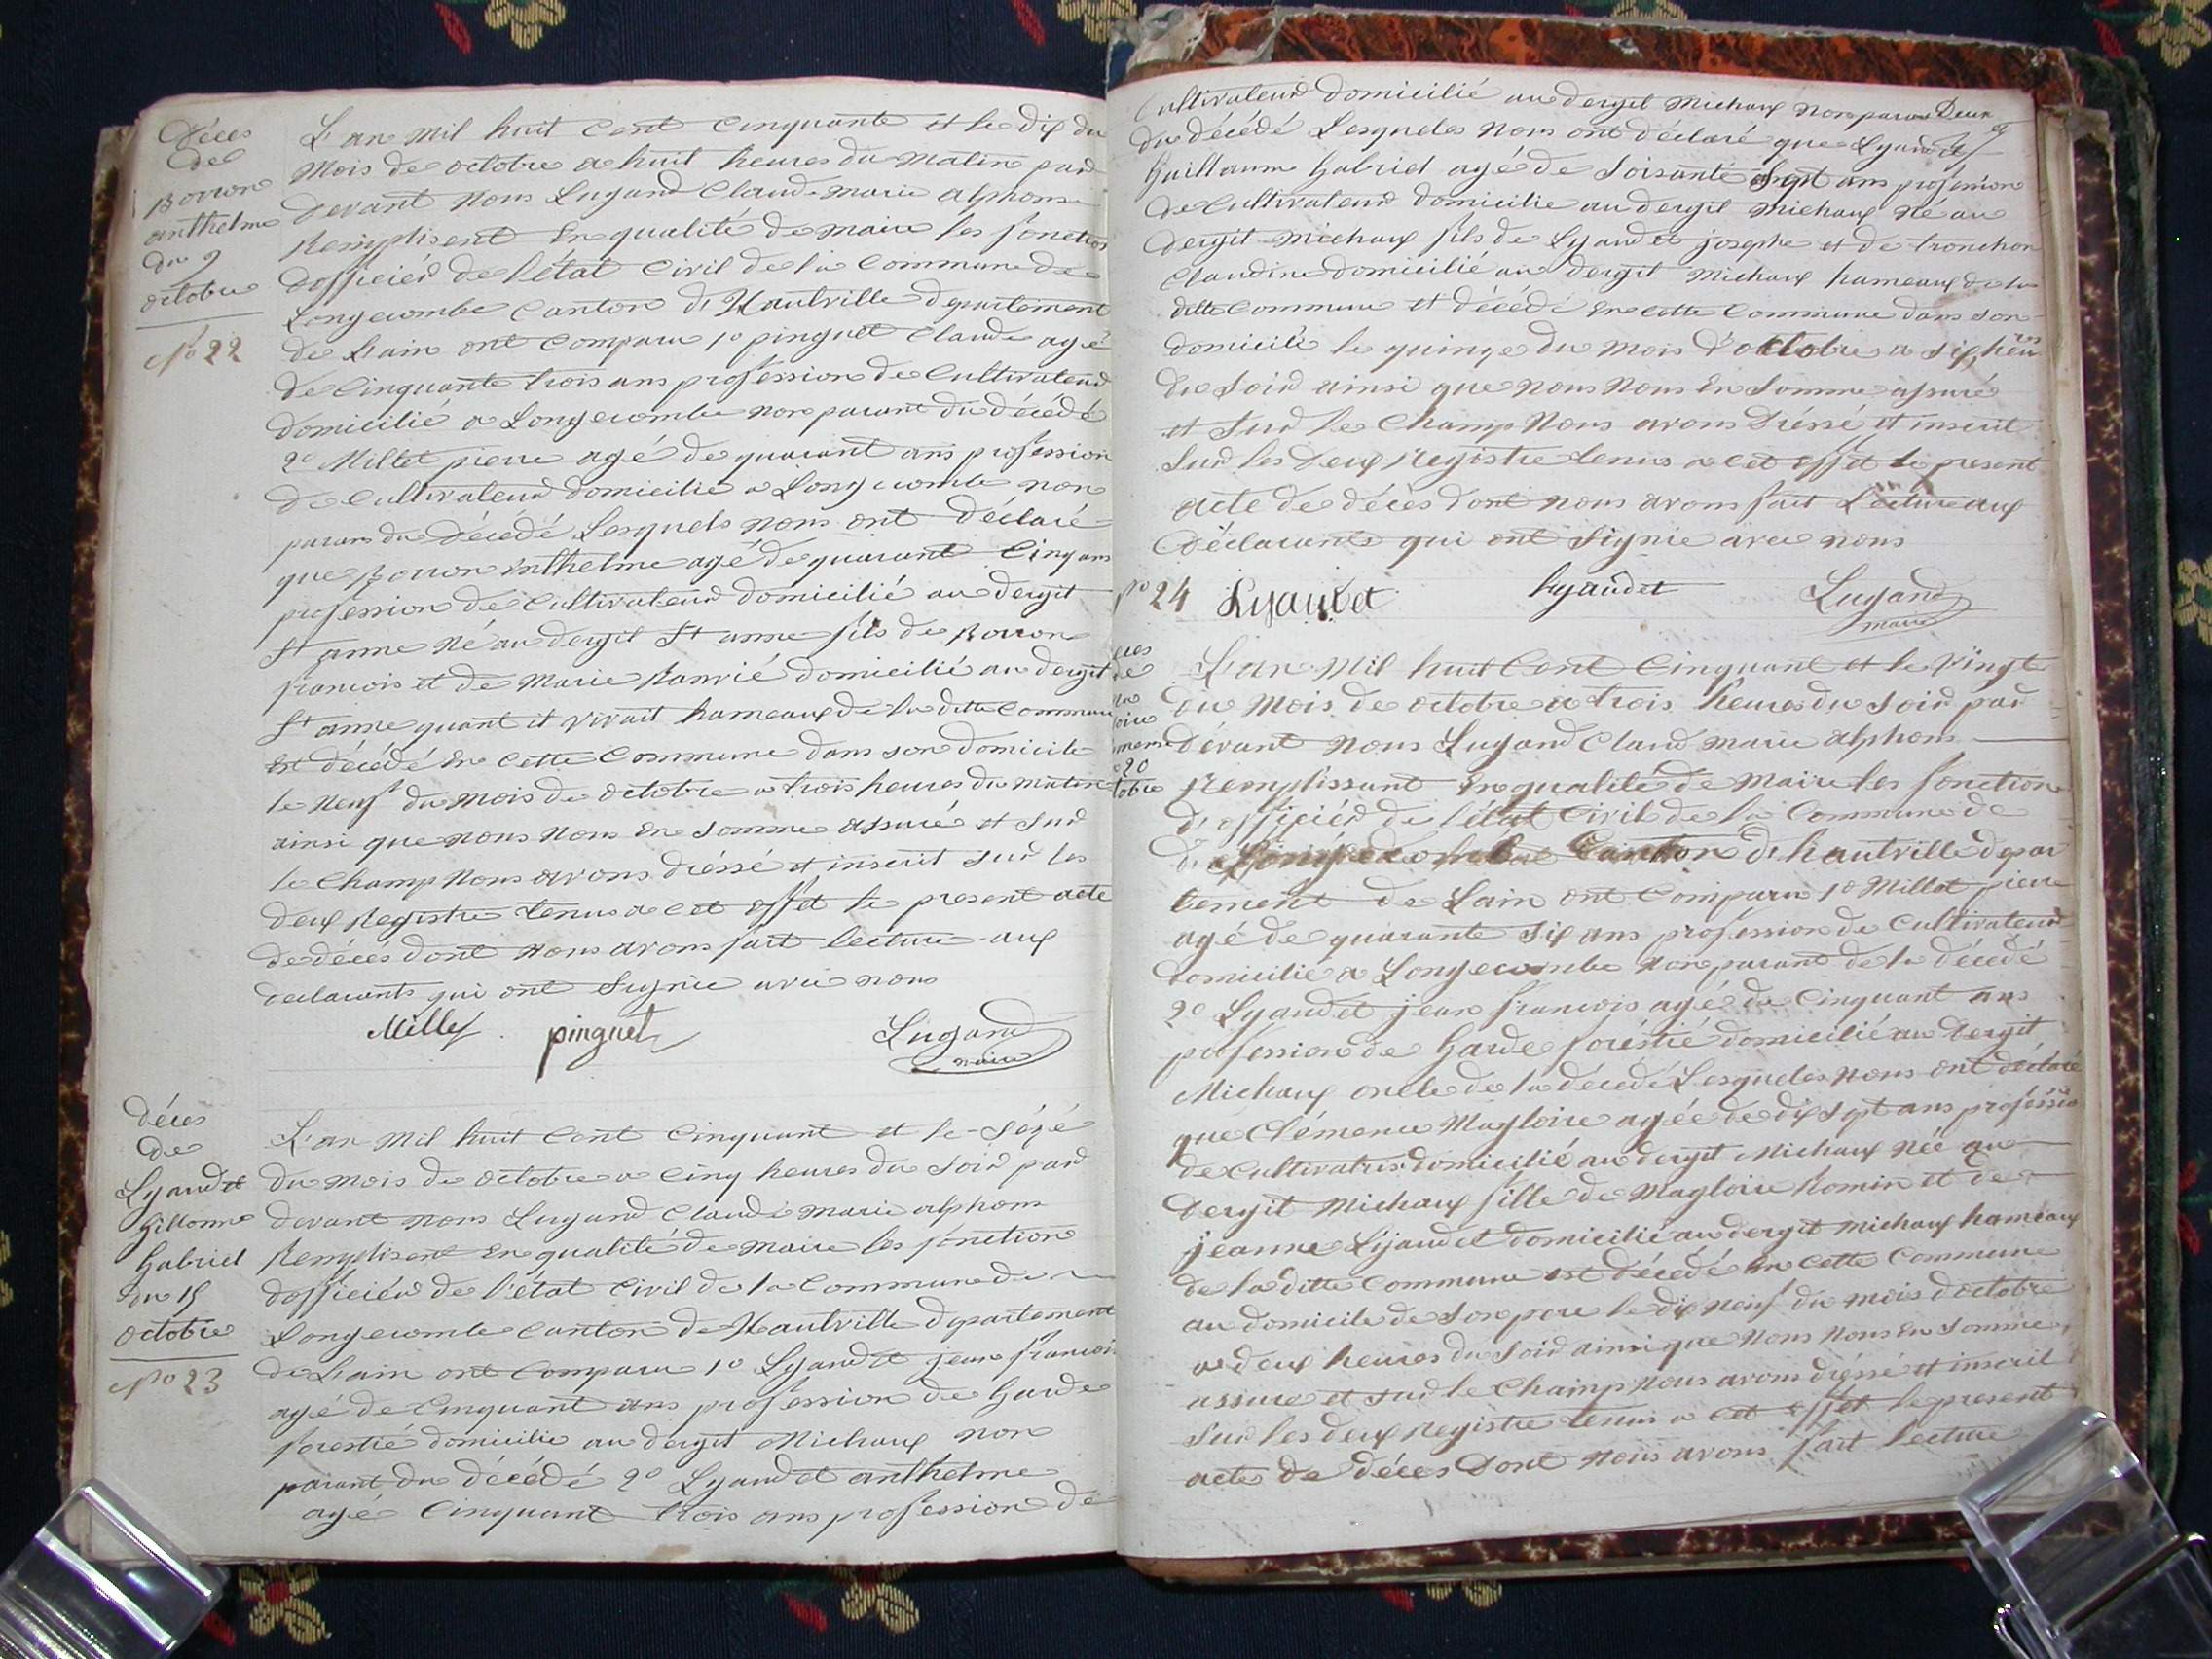 Déces
de
Borron
anthelme
du 9
octobre
No 22
L'an mil huit Cent Cinquante et le dix du
Mois de octobre a huit heures du Matin par
devant nous Lugand Claude marie alphonse
Remplisent En qualité de maire les fonction
dofficier de l'état Civil de la Commune de
Longecombe Canton d'Hautville departement
de L'ain ont Comparu 1o pinguet Claude agé
de Cinquante trois ans profession de Cultivateur
domicilie a Longecombe non parant du décédé
2o Millet pierre agé de quarant ans profession
de Cultivateur domicilie a Longecombe non
parans du décédé Lesquels nous ont déclaré
que Borron anthelme agé de quarant Cinq ans
profession de Cultivateur domicilié au dergit
St anne Né au dergit St anne fils de Borron
francois et de Marie domicilié au dergit
St anne quant it vivait hameaux de la ditte Commune
Est décédé En Cette Commune dans son domicile
le Neuf du mois de octobre a trois heures du matin
ainsi que nous nous En somme assuré et sur
le Champ Nous avons diéssé et inscrit sur les
deux Registre tenus a cet effet le present acte
de déces dont nous avons fait lecture aux
declarants qui ont Signie avec nous
Millet pinguet Lugand
maire
déces
de
Lyaudet
Gillonne
Gabriel
du 15
octobre
No 23
L'an Mil huit Cent Cinquant et le Sézé
du mois de octobre a Cinq heures du Soir par
devant nous Lugand Claude Marie alphons
Remplisent En qualité de maire les fonction
dofficier de l'état Civil de la Commune de
Longecombe Canton de Hautville departement
de L'ain ont Comparu 1o Lyaudet jean francois
agé de Cinquant ans profession de Garde
forestié domicilie au dergit Michaux non
parant du décédé 2o Lyaudet anthelme
agé Cinquant trois ans profession de
Cultivateur domicilié au dergit Michaux non parans Deux
du décédé Lesqueles nous ont déclaré que Lyaudet
Guillaume Gabriel agé de Soisante Sept ans profession
de Cultivateur domicilie au dergit Michaux Né au
dergit Michaux fils de Lyaudet josephe et de tronchon
Claudine domicilié au dergit Michaux hameaux de la
ditte Commune et décédé En cette Commune dans son
domicile le quinze du mois d'octobre a six heures
du Soir ainsi que nous nous En Somme assuré
et Sur le Champ Nous avons Diéssé et inscrit
Sur les Deux Registre tenus a cet effet le present
acte de décès dont nous avons fait Lecture aux
Déclarants qui ont Signie avec nous
No 24 Lyaudet Lyaudet Lugand
maire
20
L'an Mil huit Cent Cinquant et le Vingt
du Mois de octobre a trois heures du Soir par
dévant nous Lugand Claud marie alphons
Remplissant En qualité de Maire les fonction
d'officiér de l'état Civil de la Commune de
Canton d'hautville depar
tement de Lain ont Comparu 1o Millet pierre
agé de quarante Six ans profession de Cultivateur
domicilié a Longecombe Non parant de la décédé
2o Lyaudet jean francois agé de Cinquant ans
profession de Garde foréstié domicilié au Dergit
Michaux oncle de la décédé Lesqueles nous ont déclaré
que Clémence Magloire agée de dix Sept ans professio
de Cultivatris domicilié au dergit Michaux Née au
Dergit Michaux fille de Magloire Romin et de
jeanne Lyaudet domicilié au dergit Michaux hameaux
de la ditte Commune est décédé En Cette Commune
au domicile de Son pere le dix Neuf du mois d'octobre
a deux heures du Soir ainsi que Nous Nous En Somme
assure et sur le Champ Nous avons diéssé et inscrit
Sur les deux registre tenus a cet effet le present
acte de déces Dont nous avons fait lecture